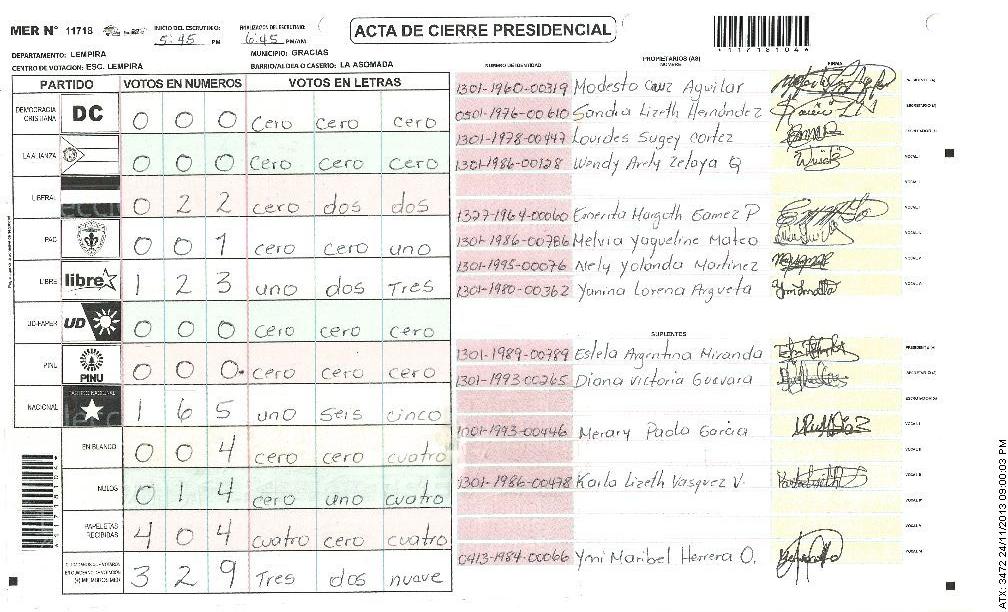 MER Nº 11718 INICIO DEL ESCRUTINIO: 5:45 PM FINALIZACION DEL ESCRUTINIO: 6:45 PM/AM
ACTA DE CIERRE PRESIDENCIAL
DEPARTAMENTO: LEMPIRA MUNICIPIO: GRACIAS
CENTRO DE VOTACION: ESC. LEMPIRA BARRIO/ALDEA O CASERIO: LA ASOMADA
PARTIDO VOTOS EN NUMEROS VOTOS EN LETRAS
DEMOCRACIA CRISTIANA DC 0 0 0 Cero cero cero
LA ALIANZA 0 0 0 Cero cero cero
LIBERAL 0 2 2 cero dos dos
PAC 0 0 1 cero cero uno
LIBRE libre 1 2 3 uno dos Tres
UD-FAPER UD 0 0 0 cero cero cero
PINU PINU 0 0 0 cero cero cero
NACIONAL 1 6 5 uno seis cinco
EN BLANCO 0 0 4 cero cero cuatro
NULOS 0 1 4 cero uno cuatro
PAPELETAS RECIBIDAS 4 0 4 cuatro cero cuatro
3 2 9 Tres dos nueve
PROPIETARIOS (AS)
NUMERO DE IDENTIDAD NOMBRE FIRMA
1301-1960-00319 Modesto Cruz Aguilar
0501-1976-00610 Sandra Lizeth Hernández
1301-1978-00447 Lourdes Sugey cortez
1301-1986-00128 Wendy Arely Zelaya Q
1327-1964-00060 Emerita Margoth Gamez P
1301-1986-00786 Melvia Yaqueline Mateo
1301-1995-00076 Nely Yolanda Martinez
1301-1980-00362 Yanina Lorena Argueta
SUPLENTES
1301-1989-00789 Estela Argentina Miranda
1301-1993-00265 Diana Victoria Guevara
1301-1993-00446 Merary Paola Garcia
1301-1986-00478 Karla Lizeth Vasquez V.
0413-1984-00066 Yeni Maribel Herrera O.
ATX: 3472 24/11/2013 09:00:03 PM